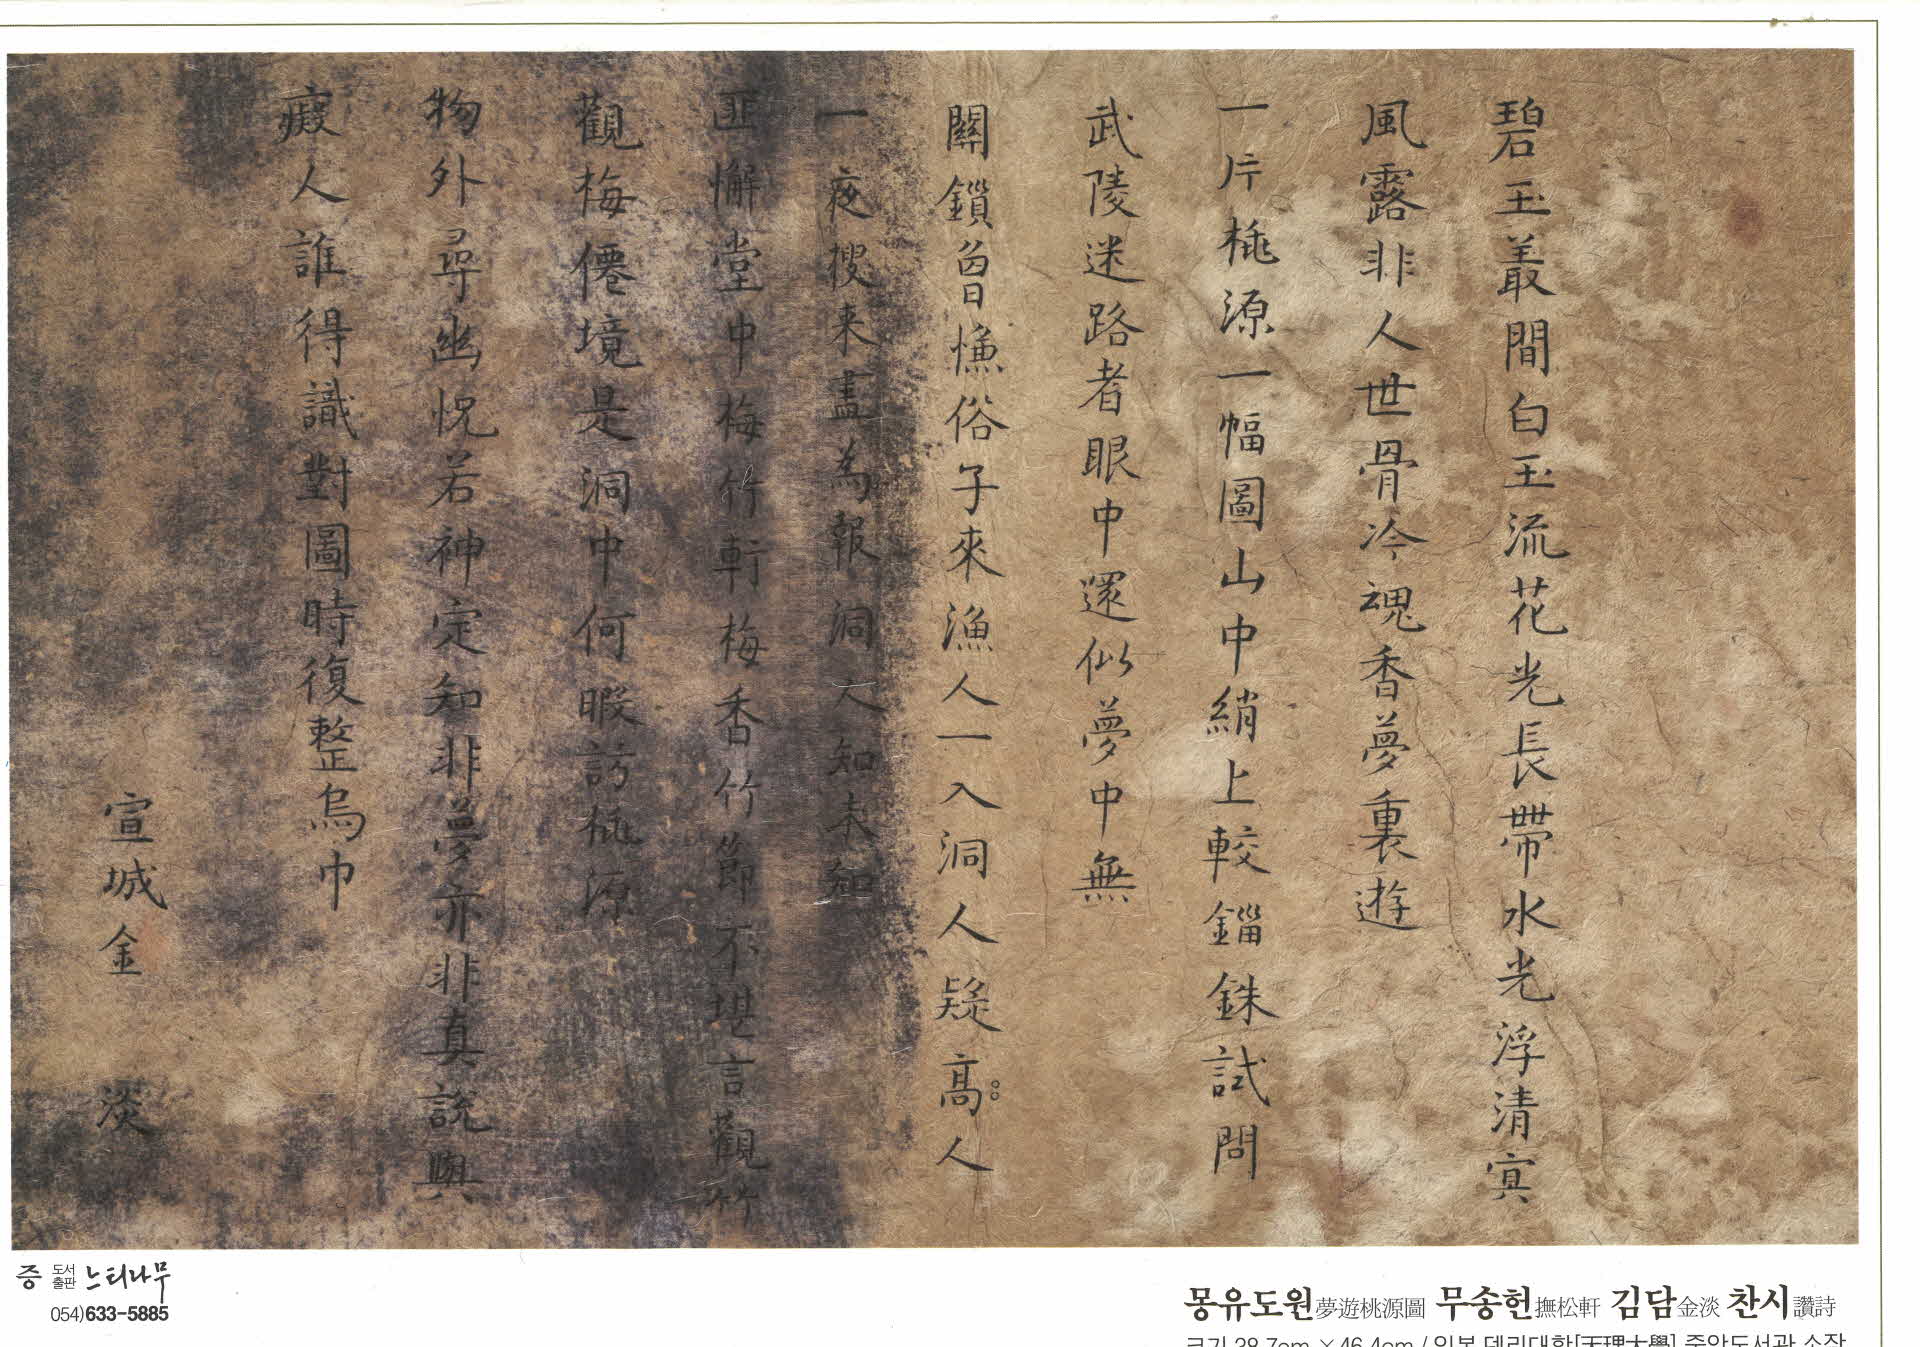 碧玉叢間白玉流花光長帶水光浮清寅
風露非人世骨冷魂香夢裏遊
一片桃源一幅圖山中絹上較錙銖試問
武陵迷路者眼中還似夢中無
關鎖曾憔俗子來漁人一入洞人疑高人
一夜搜來盡為報洞人知未知
匪懈堂中梅竹軒梅香竹節不堪言觀竹
觀梅僊境是洞中何暇訪桃源
物外尋幽怳若神定知非夢亦非真說與
癡人誰得識對圖時復整烏巾
宣城金 淡
증 도서출판 느티나무
054)633-5885
몽유도원夢遊桃源圖 무송헌撫松軒 김담金淡 찬시讚詩
크기 38.7cm × 46.4cm / 일본 덴리대학[天理大學] 중앙도서관 소장